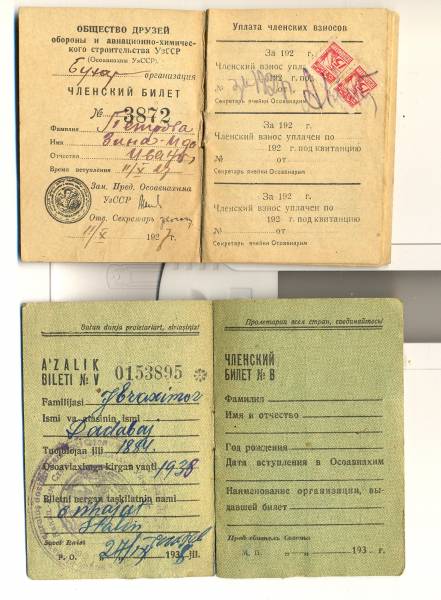 ОБЩЕСТВО ДРУЗЕЙ
обороны и авиационно-химичес-
кого строительства УзССР
(Осоавиахим УзССР).
Бухар
организация
ЧЛЕНСКИЙ БИЛЕТ
№ 3872
Фамилия Петрова
Имя Зина-Ида
Отчество
Время вступления 11/X 27
Зам. Пред. Осоавиахима
УзССР
Отв. Секретарь
11/X 1927 г.
Уплата членских взносов
За 192 г.
Членский взнос упла по
№
Секретарь ячейки Осоавиахим
За 192 г.
Членский взнос уплачен по
192 г. под квитанцию
№ от
Секретарь ячейки Осоавиахим
За 192 г.
Членский взнос уплачен по
192 г. под квитанцию
№ от
Секретарь ячейки Осоавиахим
Butun dunja proletarlari, birlaşiniz!
A'ZALIK
BILETI № V 0153895
Familijasi Jbraximov
Ismi va atasinin ismi
Dadabaj
Tuqulojan jili 1884
Osoaviaximga kirgan vaqti 1938
Biletni bergan taşkilatnin nami
Stalin
Sovet Raisi
P. O. 27/IX 1938 jil.
Пролетарии всех стран, соединяйтесь!
ЧЛЕНСКИЙ
БИЛЕТ № В
Фамилия
Имя и отчество
Год рождения
Дата вступления в Осоавиахим
Наименование организации, вы-
давшей билет
Председатель Совета
М. П. 193 г.